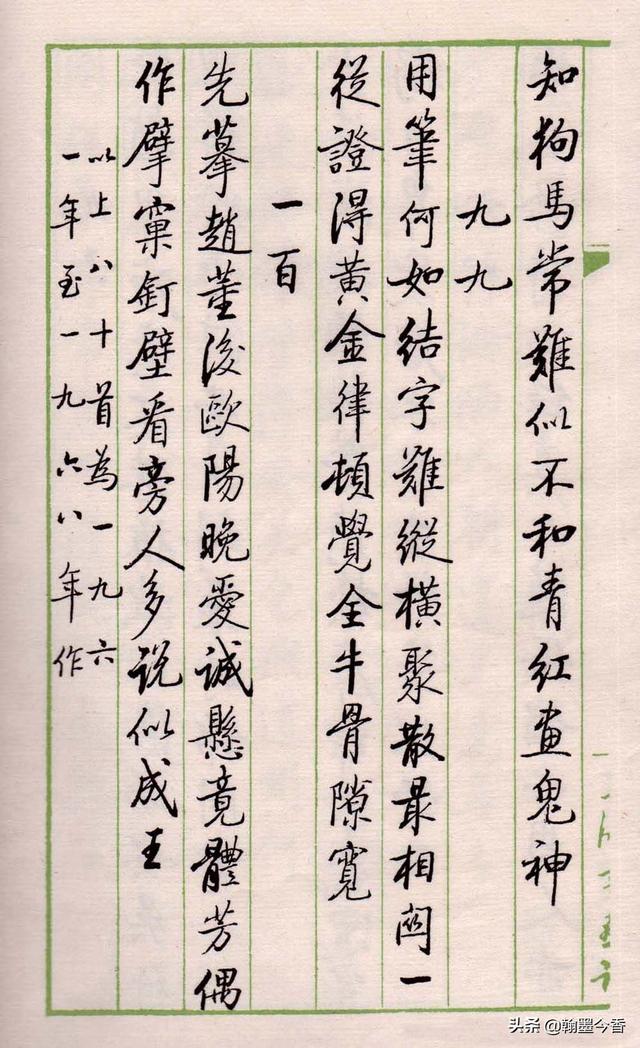 知狗馬常難似不和青紅畫鬼神
九九
用筆何如結字難縱横聚散最相關一
從證得黃金律頓覺全牛骨隙寬
一百
先摹趙董後歐陽晚愛誠懸竟體芳偶
作擘窠釘壁看旁人多说似成王
以上八十首為一九六
一年至一九六八年作
头条 @翰墨今香